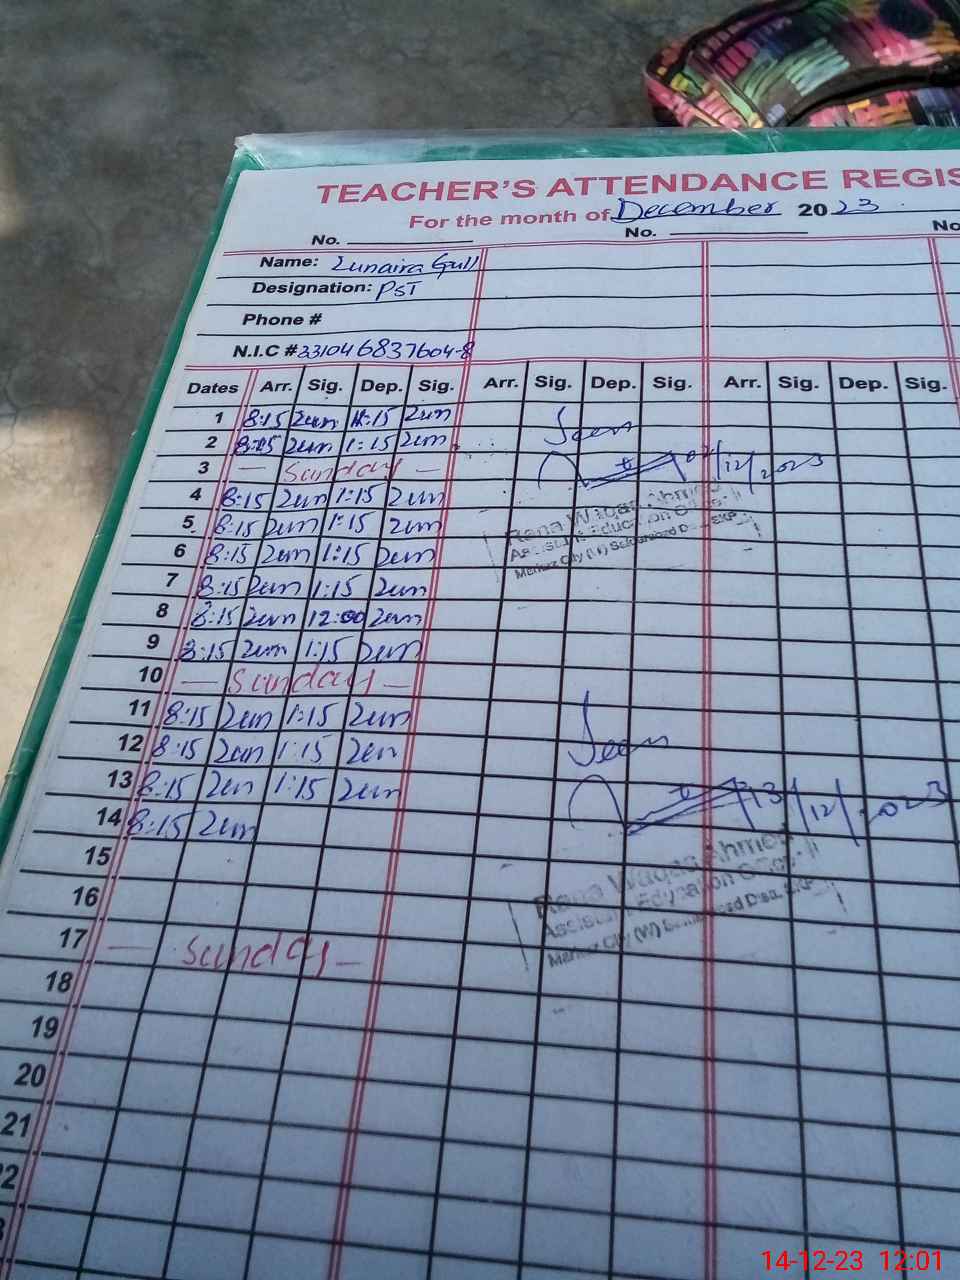 TEACHER'S ATTENDANCE REGIS
For the month of December 2023
No. No. No
Name: Zunaira Gull
Designation: PST
Phone #
N.I.C # 33104 6837604-8
Dates Arr. Sig. Dep. Sig. Arr. Sig. Dep. Sig. Arr. Sig. Dep. Sig.
1 8:15 Zun 11:15 Zun
2 8:15 Zun 1:15 Zun Seen
3 — Sunday — 12/2023
4 8:15 Zun 1:15 Zun
5 8:15 Zun 1:15 Zun Rana Waqas Ahmed
6 8:15 Zun 1:15 Zun Assistant Education Officer
7 8:15 Zun 1:15 Zun City (W)
8 8:15 Zun 12:00 Zun
9 8:15 Zun 1:15 Zun
10 — Sunday —
11 8:15 Zun 1:15 Zun
12 8:15 Zun 1:15 Zun Seen
13 8:15 Zun 1:15 Zun
14 8:15 Zun 13/12/2023
15
16 Rana Waqas Ahmed
17 — Sunday — Assistant Education Officer
18 City (W)
19
20
21
2
3
14-12-23 12:01